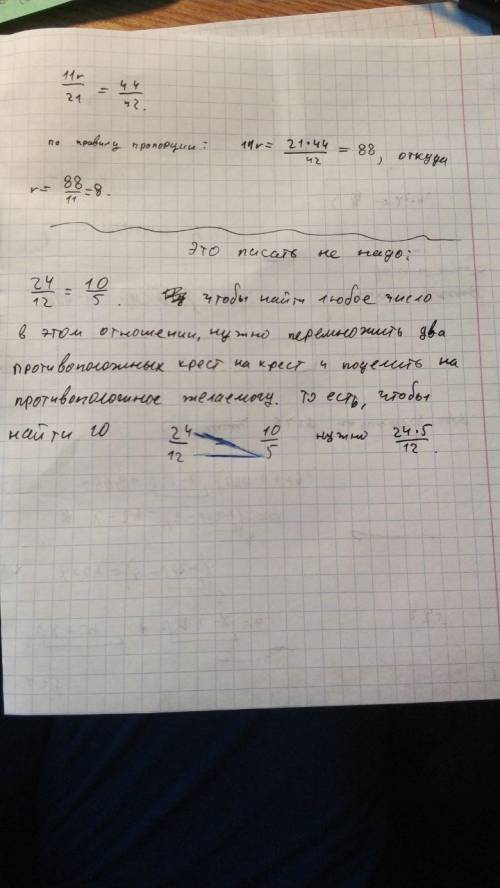 11r/21 = 44/42.
по правилу пропорции: 11r = 21·44/42 = 88, откуда
r = 88/11 = 8.
Это писать не надо:
24/12 = 10/5. чтобы найти любое число
в этом отношении, нужно перемножить два
противоположных крест на крест и поделить на
противоположное желаемому. То есть, чтобы
найти 10 24/12 10/5 нужно 24·5/12.